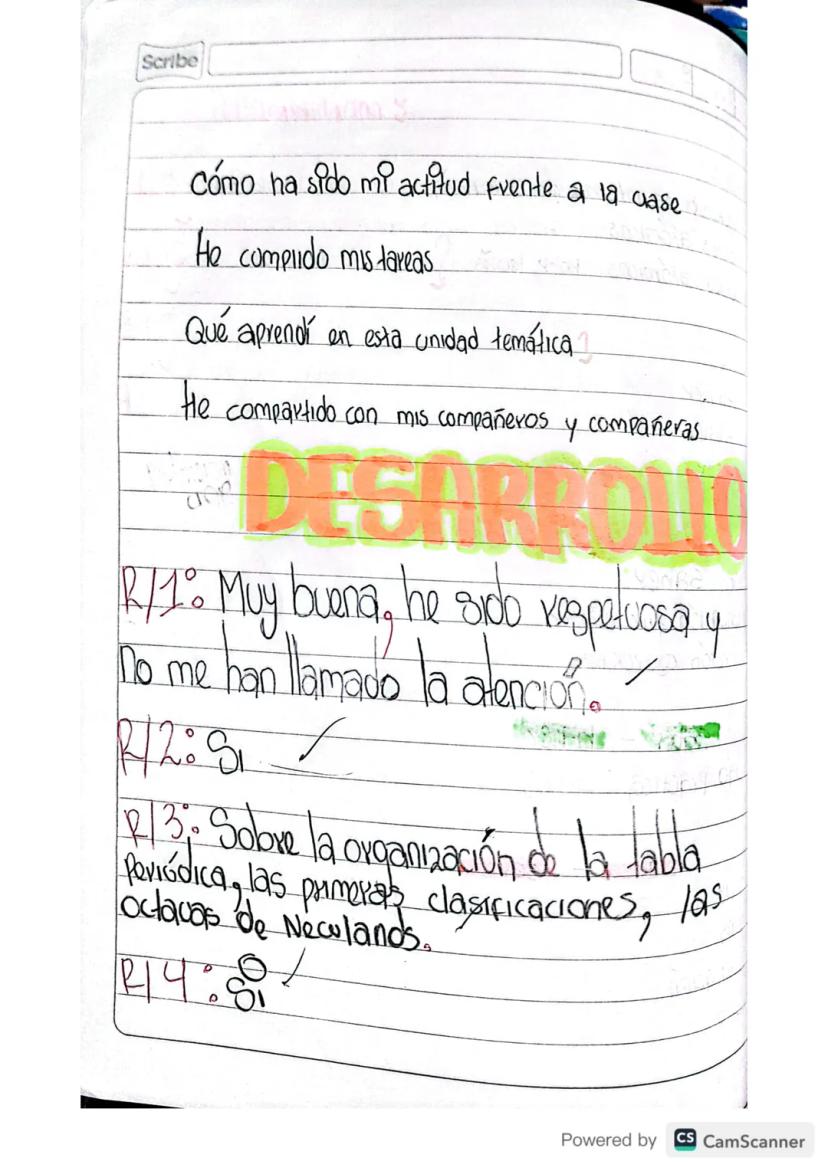 Scribe
Cómo ha sido mi actitud frente a la clase
He complido mis tareas
Qué aprendí en esta unidad temática?
He compartido con mis compañeros y compañeras
DESARROLLO
R/1: Muy buena, he sido respetuosa y
no me han llamado la atención.
R/2: Si
R/3: Sobre la organización de la tabla
Periódica, las primeras clasificaciones, las
octavas de Neculands.
R/4: Si
Powered by CS CamScanner